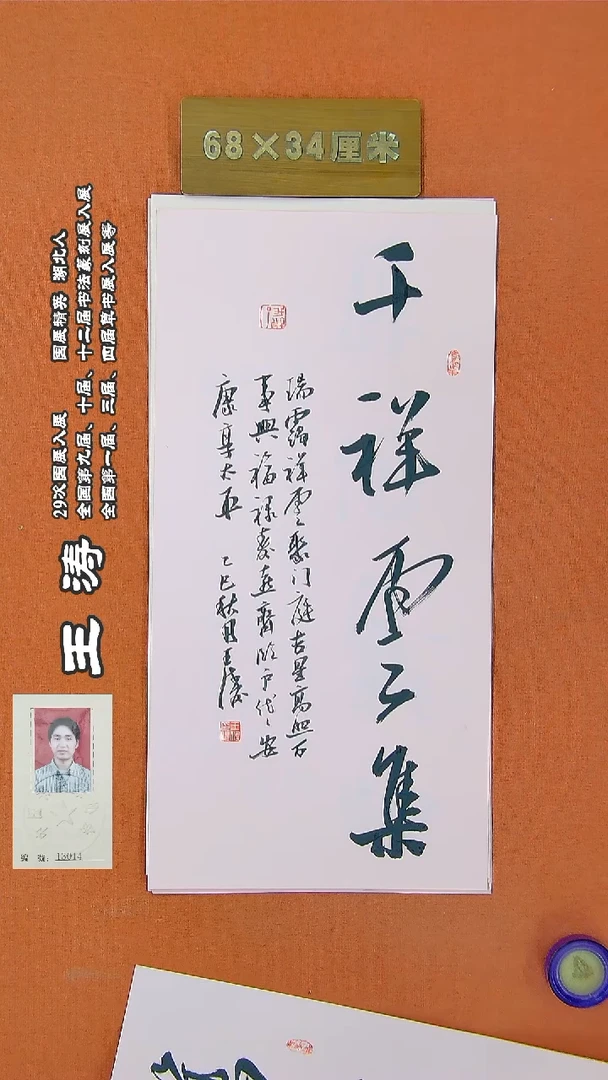 68×34厘米
千祥雲集
瑞靄祥雲聚门庭吉星高照百
事興福禄寿喜齊临户代代安
康享太平 乙巳秋月王涛
王涛
29次国展入展 国展精英 湖北人
全国第九届、十届、十二届书法篆刻展入展
全国第一届、三届、四届草书展入展等
编 号：